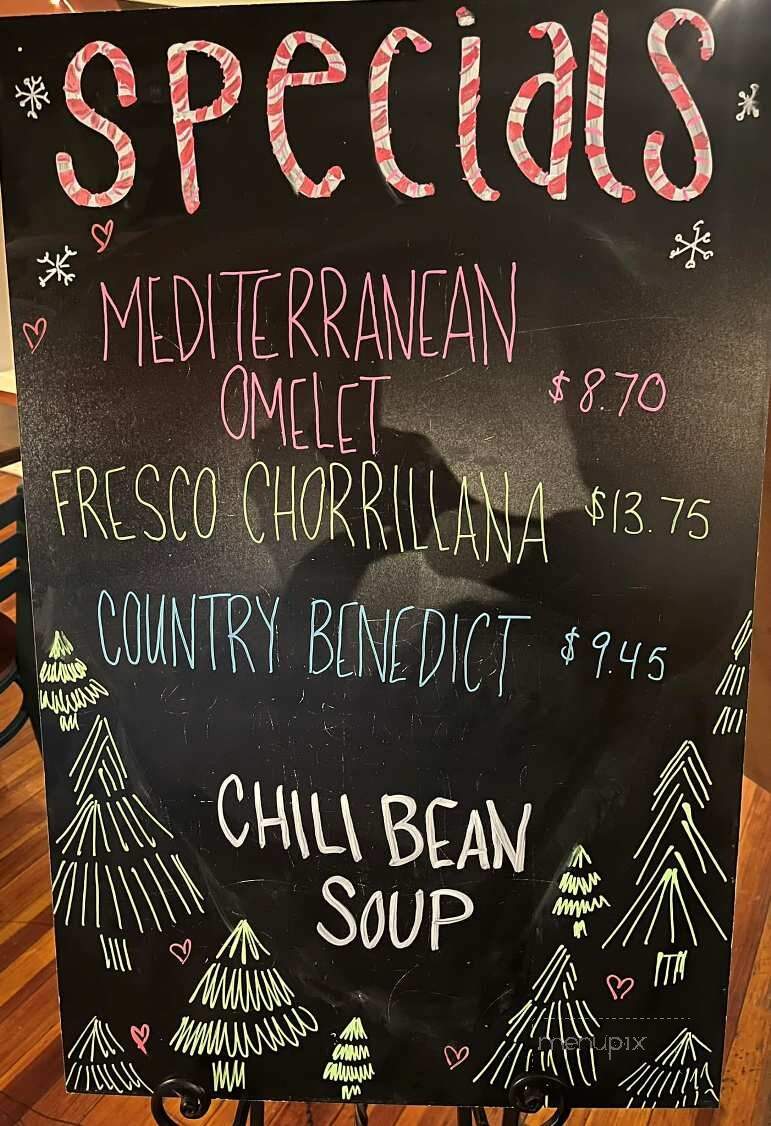 Specials
MEDITERRANEAN
OMELET $8.70
FRESCO CHORRILLANA $13.75
COUNTRY BENEDICT $9.45
CHILI BEAN
SOUP
menupix